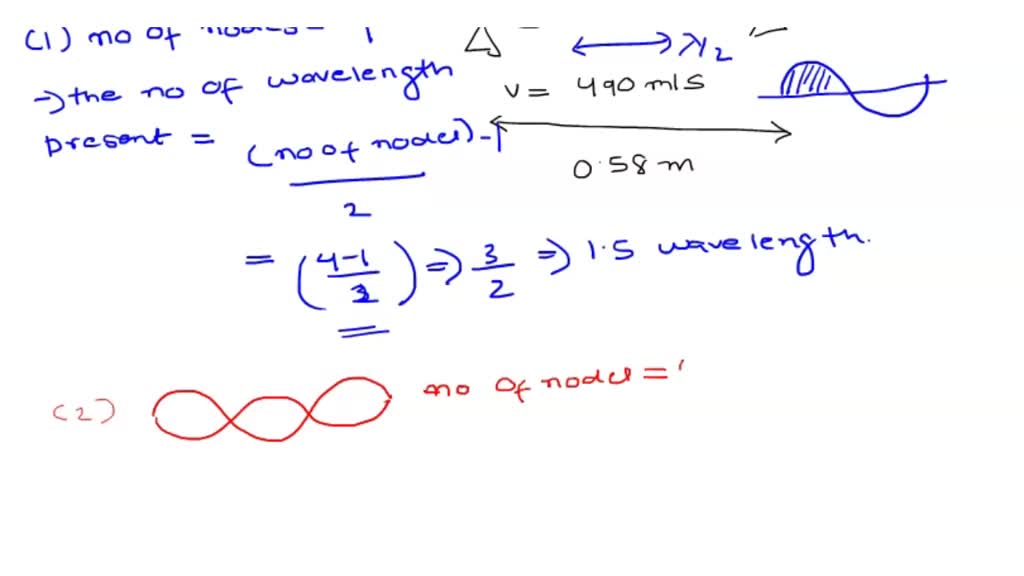 (1) no of nodes =
→ the no of wavelength
present = (no of nodes) - 1
2
λ/2
v = 490 m/s
0.58 m
= (4-1/2) ⇒ 3/2 ⇒ 1.5 wavelength.
(2) no of nodes =